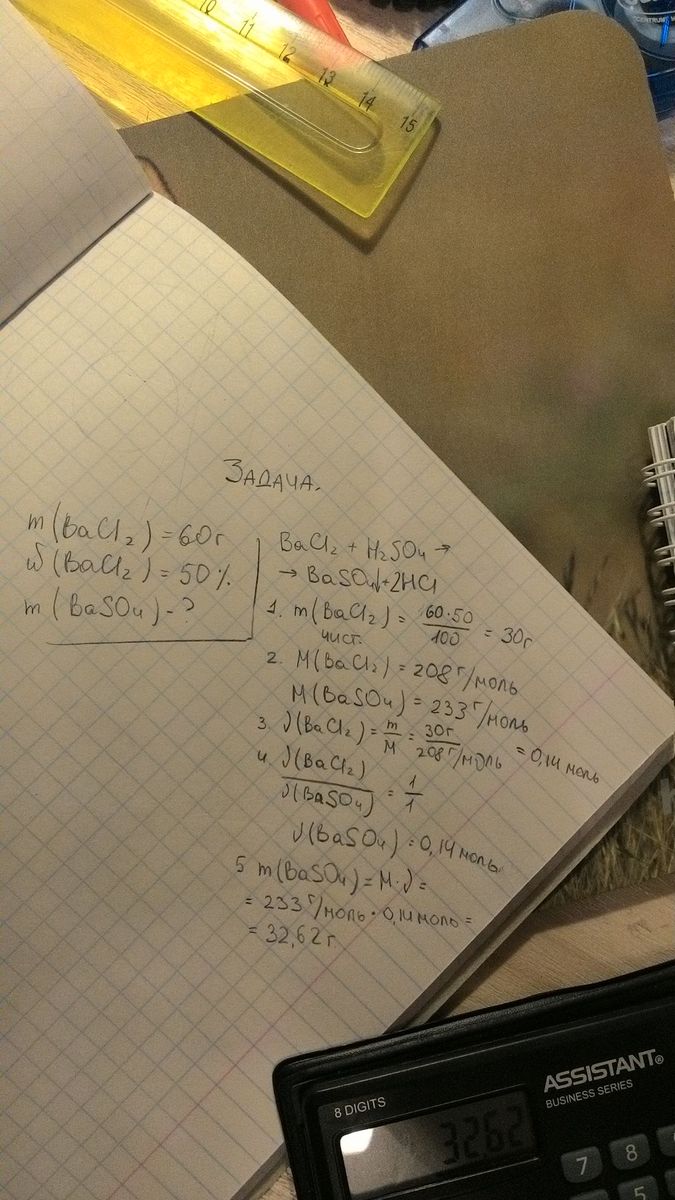 10 11 12 13 14 15
ЗАДАЧА.
m(BaCl₂) = 60г
ω(BaCl₂) = 50%
m(BaSO₄) - ?
BaCl₂ + H₂SO₄ →
→ BaSO₄↓+2HCl
1. m(BaCl₂) = 60·50/100 = 30г
чист.
2. M(BaCl₂) = 208 г/моль
M(BaSO₄) = 233 г/моль
3. ν(BaCl₂) = m/M = 30г/208 г/моль = 0,14 моль
4. ν(BaCl₂)/ν(BaSO₄) = 1/1
ν(BaSO₄) = 0,14 моль
5 m(BaSO₄) = M·ν =
= 233 г/моль · 0,14 моль =
= 32,62 г
ASSISTANT®
BUSINESS SERIES
8 DIGITS
32.62
7 8
5